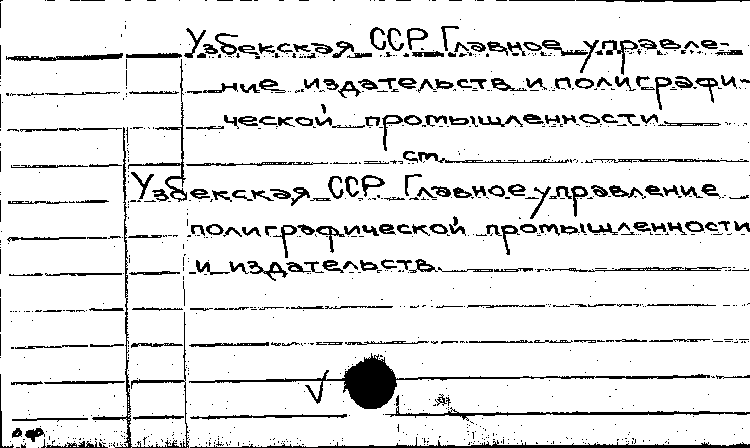 Узбекская ССР. Главное управле-
ние издательств и полиграфи-
ческой промышленности
см.
Узбекская ССР. Главное управление
полиграфической промышленности
и издательств.